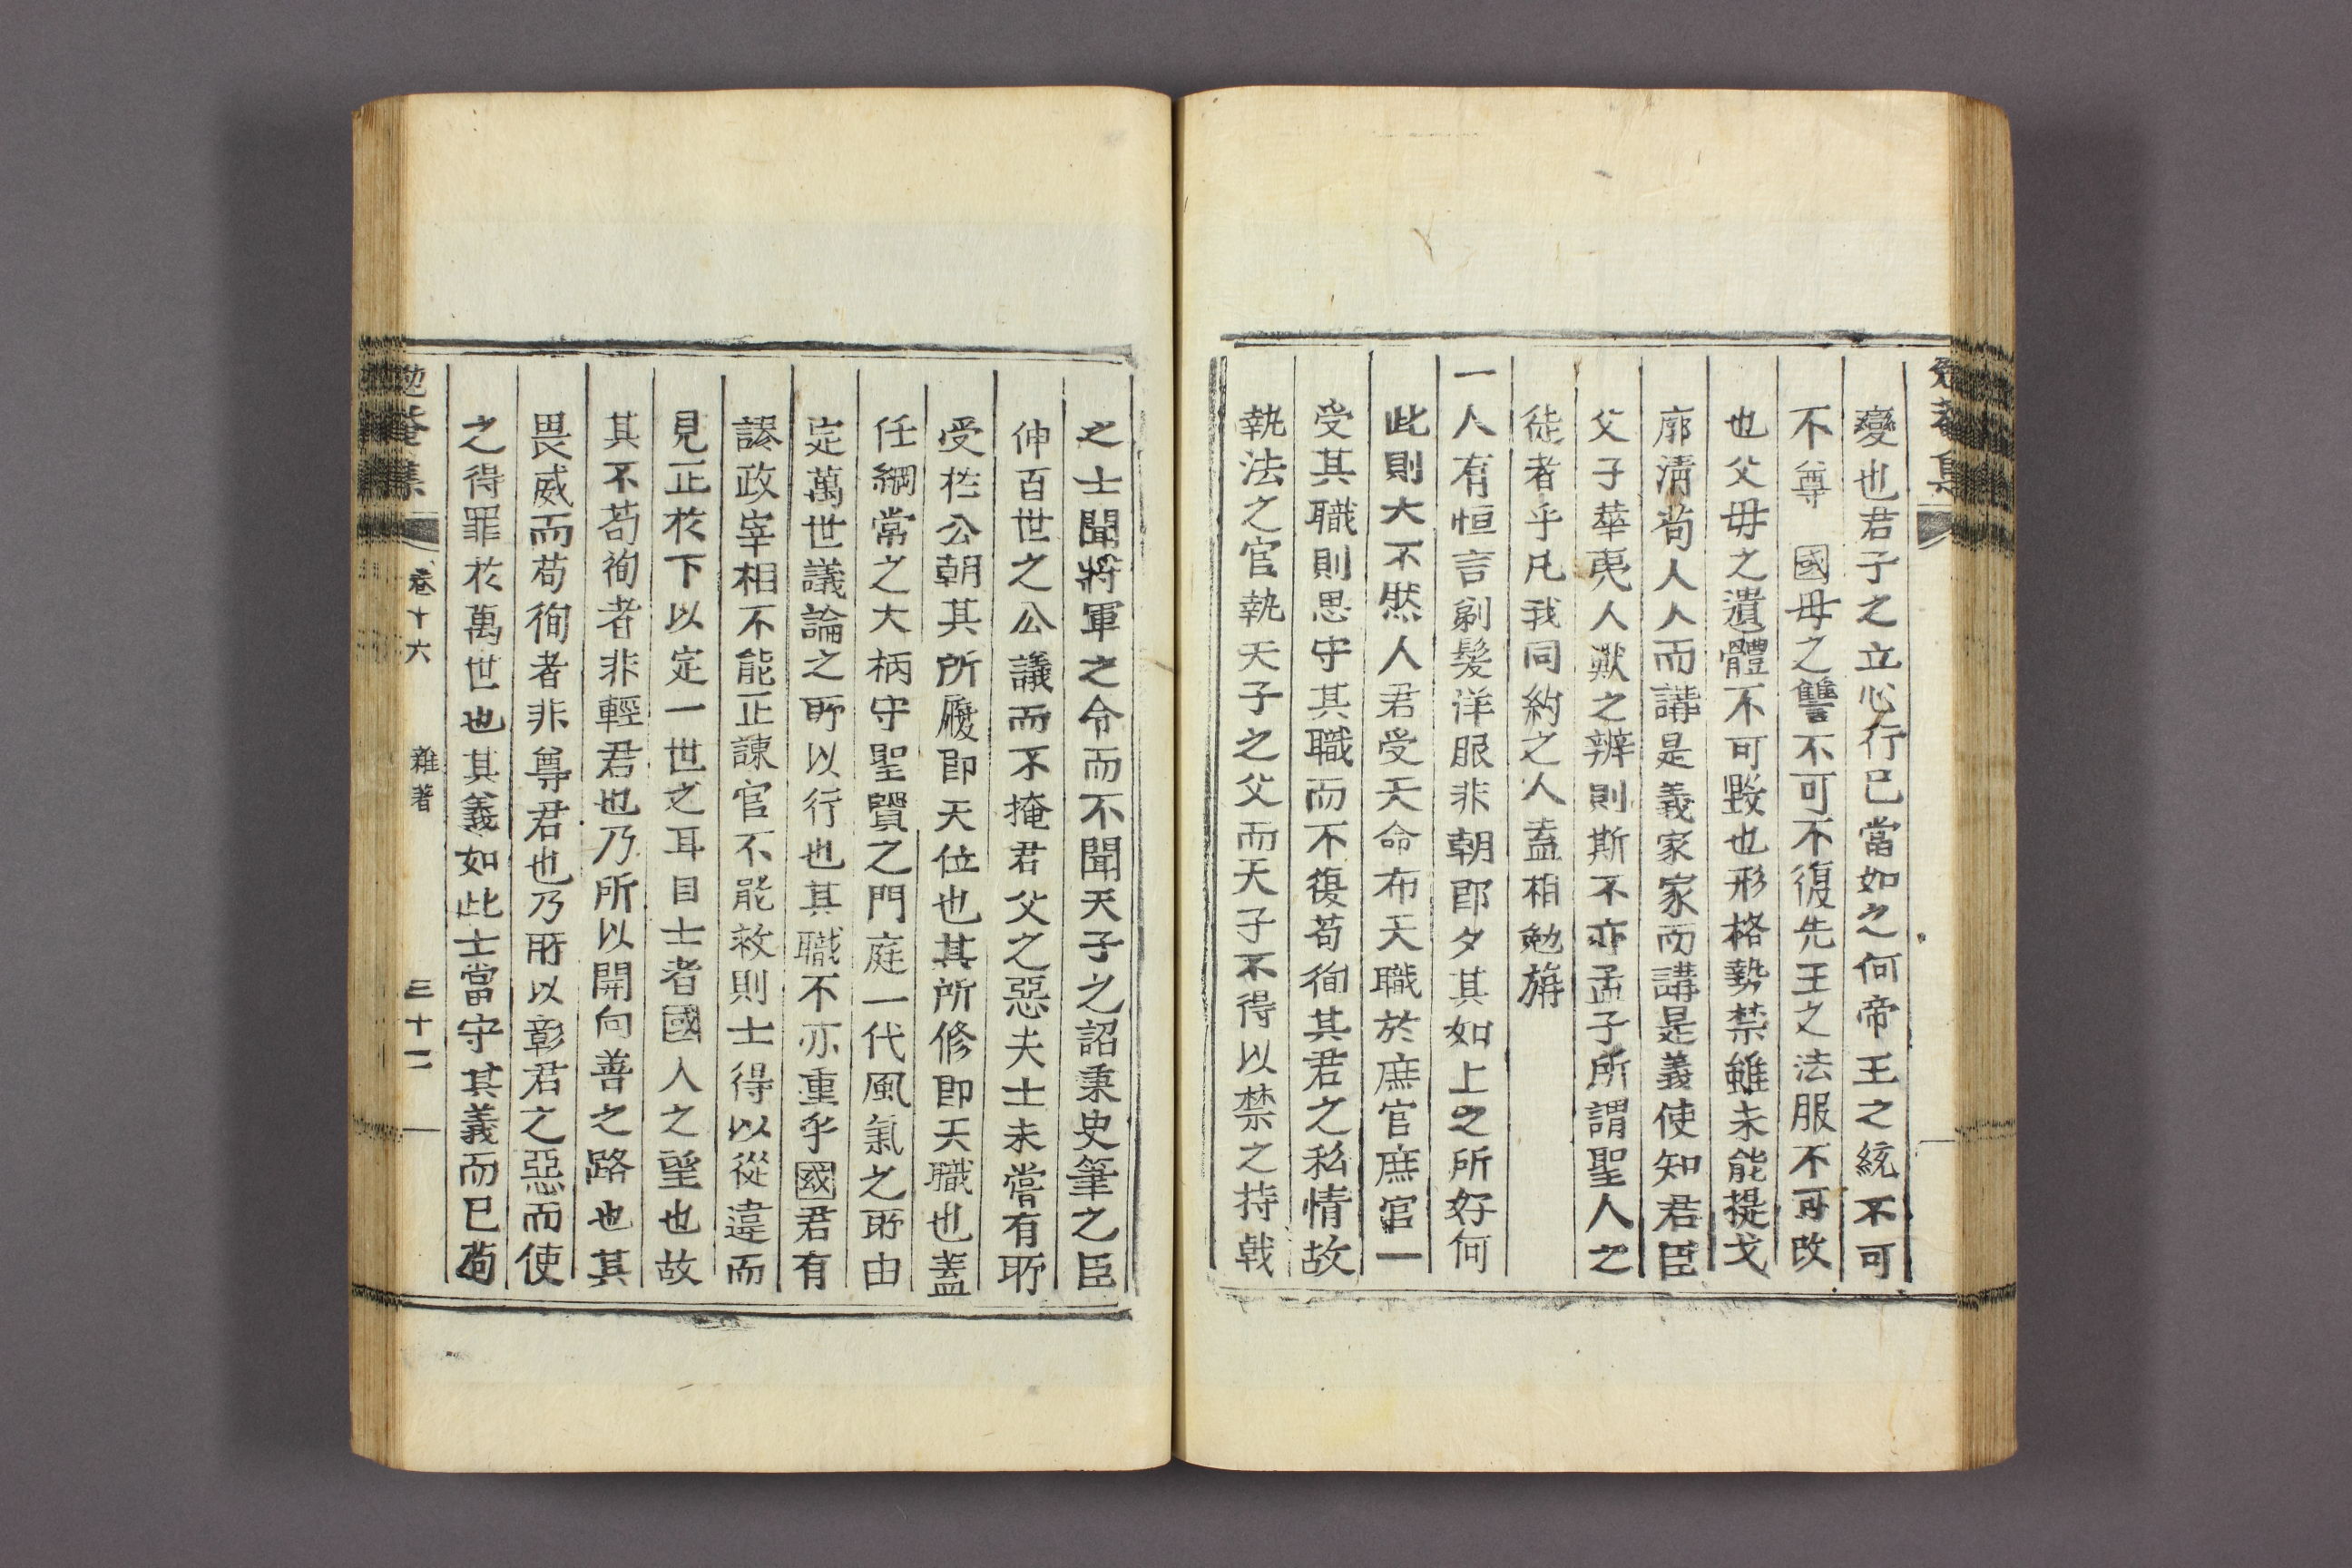 勉菴集
變也君子之立心行已當如之何帝王之統不可
不尊 國母之讐不可不復先王之法服不可改
也父母之遺體不可毁也形格勢禁雖未能提戈
廓淸苟人人而講是義家家而講是義使知君臣
父子華夷人獸之辨則斯不亦孟子所謂聖人之
徒者乎凡我同約之人盍相勉旃
一人有恒言剃髮洋服非朝卽夕其如上之所好何
此則大不然人君受天命布天職於庶官庶官一
受其職則思守其職而不復苟徇其君之私情故
執法之官執天子之父而天子不得以禁之持戟
之士聞將軍之令而不聞天子之詔秉史筆之臣
伸百世之公議而不掩君父之惡夫士未嘗有所
受於公朝其所履卽天位也其所修卽天職也盖
任綱常之大柄守聖賢之門庭一代風氣之所由
定萬世議論之所以行也其職不亦重乎國君有
誤政宰相不能正諫官不能救則士得以從違而
見正於下以定一世之耳目士者國人之望也故
其不苟徇者非輕君也乃所以開向善之路也其
畏威而苟徇者非尊君也乃所以彰君之惡而使
之得罪於萬世也其義如此士當守其義而已苟
勉菴集 卷十六 雜著 三十二